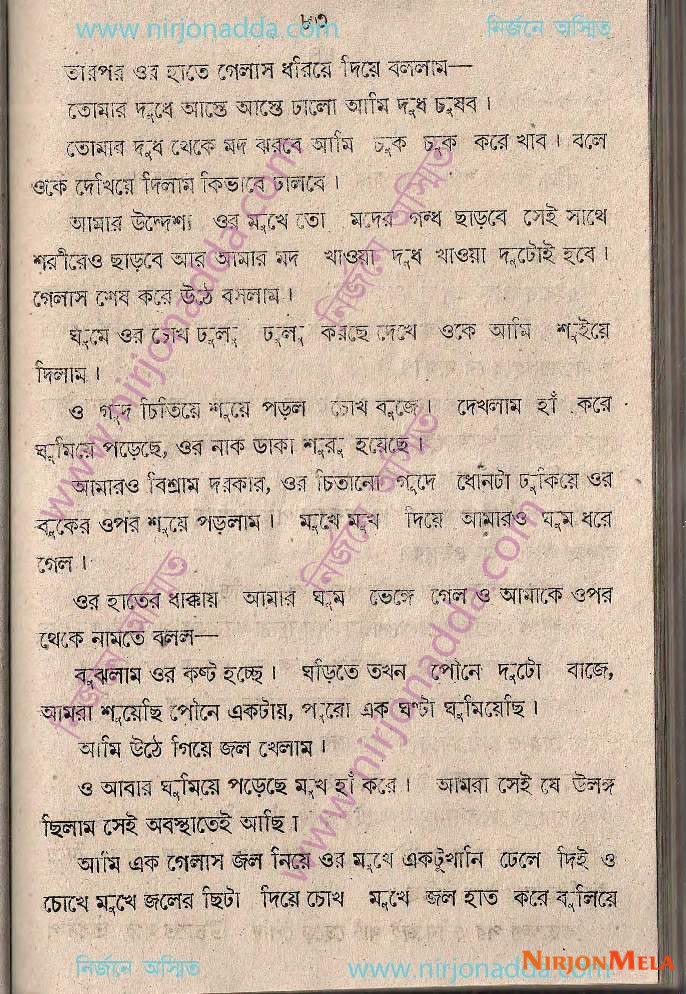 ৮৩
www.nirjonadda.com নির্জনে অস্মিত
তারপর ওর হাতে গেলাস ধরিয়ে দিয়ে বললাম—
তোমার দুধে আস্তে আস্তে ঢালো আমি দুধ চুষব।
তোমার দুধ থেকে মদ ঝরবে আমি চুক চুক করে খাব। বলে
ওকে দেখিয়ে দিলাম কিভাবে ঢালবে।
আমার উদ্দেশ্য ওর মুখে তো মদের গন্ধ ছাড়বে সেই সাথে
শরীরেও ছাড়বে আর আমার মদ খাওয়া দুধ খাওয়া দুটোই হবে।
গেলাস শেষ করে উঠে বসলাম।
ঘুমে ওর চোখ ঢুলু ঢুলু করছে দেখে ওকে আমি শুইয়ে
দিলাম।
ও গুদ চিতিয়ে শুয়ে পড়ল চোখ বুজে। দেখলাম হাঁ করে
ঘুমিয়ে পড়েছে, ওর নাক ডাকা শুরু হয়েছে।
আমারও বিশ্রাম দরকার, ওর চিতানো গুদে ধোনটা ঢুকিয়ে ওর
বুকের ওপর শুয়ে পড়লাম। মুখে মুখ দিয়ে আমারও ঘুম ধরে
গেল।
ওর হাতের ধাক্কায় আমার ঘুম ভেঙ্গে গেল ও আমাকে ওপর
থেকে নামতে বলল—
বুঝলাম ওর কষ্ট হচ্ছে। ঘড়িতে তখন পৌনে দুটো বাজে,
আমরা শুয়েছি পৌনে একটায়, পুরো এক ঘণ্টা ঘুমিয়েছি।
আমি উঠে গিয়ে জল খেলাম।
ও আবার ঘুমিয়ে পড়েছে মুখ হাঁ করে। আমরা সেই যে উলঙ্গ
ছিলাম সেই অবস্থাতেই আছি।
আমি এক গেলাস জল নিয়ে ওর মুখে একটুখানি ঢেলে দিই ও
চোখে মুখে জলের ছিটা দিয়ে চোখ মুখে জল হাত করে বুলিয়ে
www.nirjonadda.com নির্জনে অস্মিত
www.nirjonadda.com নির্জনে অস্মিত
নির্জনে অস্মিত www.nirjonadda.com
নির্জনে অস্মিত www.nirjonadda.com
NIRJONMELA